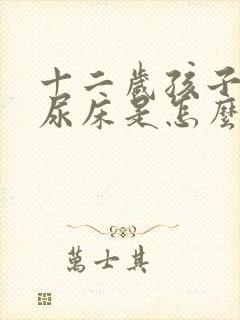 十二歲孩子
尿床是怎麼
萬士其